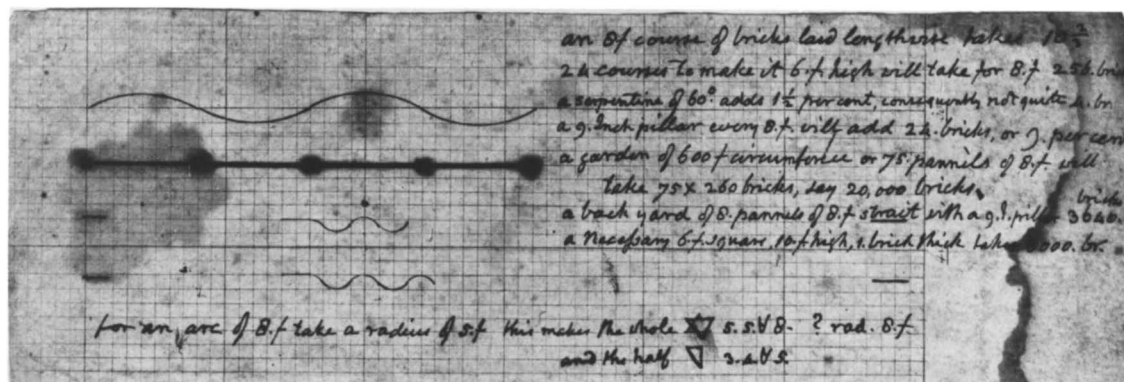 an 8f course of bricks laid lengthwise takes 10 2/3
24 courses to make it 6.f high will take for 8.f 256. bri
a serpentine of 60° adds 1½ per cent, consequently not quite 4. br.
a 9. Inch pillar every 8.f. will add 24. bricks, or 9. per cen
a garden of 600 f circumference or 75. pannels of 8.f will
take 75 x 260 bricks, say 20,000 bricks.
a back yard of 8. pannels of 8.f strait with a 9.I. pillar 3640. bricks
a Necessary 6.f square, 10.f high, 1. brick thick takes 6000. br.
for an arc of 8.f take a radius of 5.f this makes the whole 5.5.V 8. ? rad. 8.f
and the half 3.4.V 5.